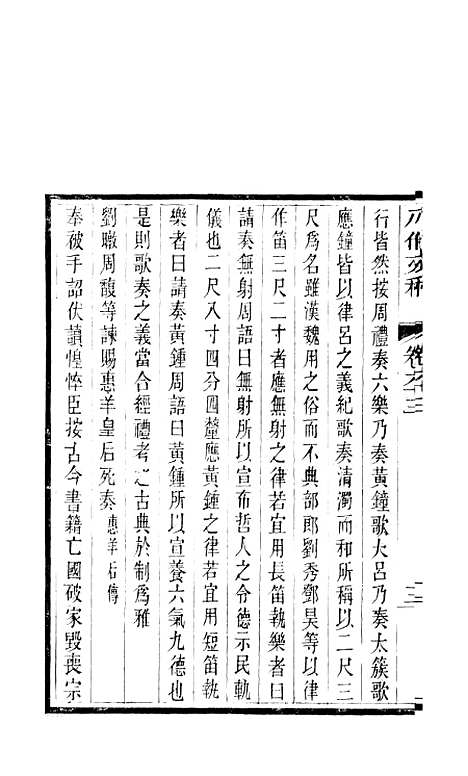 行皆然按周禮奏六樂乃奏黃鐘歌大呂乃奏太簇歌
應鐘皆以律呂之義紀歌奏清濁而和所稱以二尺三
尺爲名雖漢魏用之俗而不典部郎劉秀鄧昊等以律
作笛三尺二寸者應無射之律若宜用長笛執樂者曰
請奏無射周語曰無射所以宣布哲人之令德示民軌
儀也二尺八寸四分四釐應黃鍾之律若宜用短笛執
樂者曰請奏黃鍾周語曰黃鍾所以宣養六氣九德也
是則歌奏之義當合經禮考之古典於制爲雅
劉暾周馥等諫賜惠羊皇后死奏 惠羊后傳
奉被手詔伏讀惶悴臣按古今書籍亡國破家毀喪宗